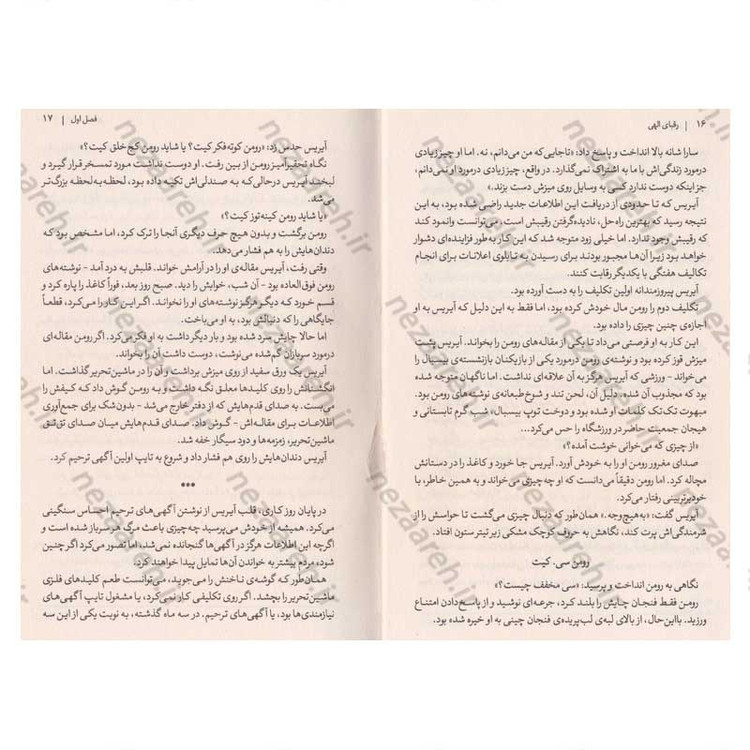 ۱۶ | رقبای الهی
سارا شانه بالا انداخت و پاسخ داد: «تاجایی‌که من می‌دانم، نه. اما او چیز زیادی
درمورد زندگی‌اش با ما به اشتراک نمی‌گذارد. در واقع، چیز زیادی درمورد او نمی‌دانم،
جز اینکه دوست ندارد کسی به وسایل روی میزش دست بزند.»
آیریس که تا حدودی از دریافت این اطلاعات جدید راضی شده بود، به این
نتیجه رسید که بهترین راه‌حل، نادیده‌گرفتن رقیبش است، می‌توانست وانمود کند
که رقیبش وجود ندارد. اما خیلی زود متوجه شد که این کار به‌طور فزاینده‌ای دشوار
خواهد بود زیرا آن‌ها مجبور بودند برای رسیدن به تابلوی اعلانات برای انجام
تکالیف هفتگی با یکدیگر رقابت کنند.
آیریس پیروزمندانه اولین تکلیف را به دست آورده بود.
تکلیف دوم را رومن مال خودش کرده بود، اما فقط به این دلیل که آیریس به او
اجازه‌ی چنین چیزی را داده بود.
این کار به او فرصتی می‌داد تا یکی از مقاله‌های رومن را بخواند. آیریس پشت
میزش قوز کرده بود و نوشته‌ی رومن درمورد یکی از بازیکنان بازنشسته‌ی بیسبال را
می‌خواند - ورزشی که آیریس هرگز به آن علاقه‌ای نداشت. اما ناگهان متوجه شده
بود که مجذوب آن شده. مجذوب آن، لحن تند و شوخ‌طبعانه‌ی نوشته‌های رومن بود.
مبهوت تک‌تک کلمات او شده بود و دوخت توپ بیسبال، شب گرم تابستانی و
هیجان جمعیت حاضر در ورزشگاه را حس می‌کرد...
«از چیزی که می‌خوانی خوشت آمده؟»
صدای مغرور رومن او را به خودش آورد. آیریس جا خورد و کاغذ را در دستانش
مچاله کرد. اما رومن دقیقاً می‌دانست که او چه‌چیزی می‌خواند و به همین خاطر، با
خودبرتربینی رفتار می‌کرد.
آیریس گفت: «به‌هیچ‌وجه.» همان‌طور که دنبال چیزی می‌گشت تا حواسش را از
شرمندگی‌اش پرت کند، نگاهش به حروف کوچک مشکی زیر تیتر ستون افتاد.
رومن سی. کیت
نگاهی به رومن انداخت و پرسید: «سی مخفف چیست؟»
رومن فقط فنجان چایش را بلند کرد، جرعه‌ای نوشید و از پاسخ‌دادن امتناع
ورزید. بااین‌حال، از بالای لبه‌ی لب‌پریده‌ی فنجان چینی به او خیره شده بود.
فصل اول | ۱۷
آیریس حدس زد: «رومن کوته‌فکر کیت؟ یا شاید رومن کج خلق کیت؟»
نگاه تحقیرآمیز رومن از بین رفت. او دوست نداشت مورد تمسخر قرار گیرد و
لبخند آیریس درحالی‌که به صندلی‌اش تکیه داده بود، لحظه‌به‌لحظه بزرگ‌تر
می‌شد.
«یا شاید رومن کینه‌توز کیت؟»
رومن برگشت و بدون هیچ حرف دیگری آنجا را ترک کرد، اما مشخص بود که
دندان‌هایش را به هم فشار می‌دهد.
وقتی رفت، آیریس مقاله‌ی او را در آرامش خواند. قلبش به درد آمد - نوشته‌های
رومن فوق‌العاده بود - آن شب، خوابش را دید. صبح روز بعد، فوراً کاغذ را پاره کرد و
قسم خورد که دیگر هرگز نوشته‌های او را نخواند. اگر این کار را می‌کرد، قطعاً
جایگاهی را که دنبالش بود، به او می‌باخت.
اما حالا چایش سرد شده بود و بار دیگر داشت به او فکر می‌کرد. اگر رومن مقاله‌ای
درمورد سربازان گم‌شده می‌نوشت، دوست داشت آن را بخواند.
آیریس یک ورق سفید از روی میزش برداشت و آن را در ماشین‌تحریر گذاشت. اما
انگشتانش را روی کلیدها معلق نگه داشت و به رومن گوش داد که کیفش را
می‌بست. به صدای قدم‌هایش که از دفتر خارج می‌شد - بدون‌شک برای جمع‌آوری
اطلاعات برای مقاله‌اش - گوش داد. صدای قدم‌هایش میان صدای تق‌تق
ماشین‌تحریر، زمزمه‌ها و دود سیگار خفه شد.
آیریس دندان‌هایش را روی هم فشار داد و شروع به تایپ اولین آگهی ترحیم کرد.
***
در پایان روز کاری، قلب آیریس از نوشتن آگهی‌های ترحیم احساس سنگینی
می‌کرد. همیشه از خودش می‌پرسید چه‌چیزی باعث مرگ هر سرباز شده است و
اگرچه این اطلاعات هرگز در آگهی‌ها گنجانده نمی‌شد، اما تصور می‌کرد اگر چنین
شود، مردم بیشتر به خواندن آن‌ها تمایل پیدا خواهند کرد.
همان‌طور که گوشه‌ی ناخنش را می‌جوید، می‌توانست طعم کلیدهای فلزی
ماشین‌تحریر را بچشد. اگر روی تکلیفی کار نمی‌کرد، یا مشغول تایپ آگهی‌های
نیازمندی‌ها بود، یا آگهی‌های ترحیم. در سه ماه گذشته، به نوبت یکی از این سه
nezaareh.ir